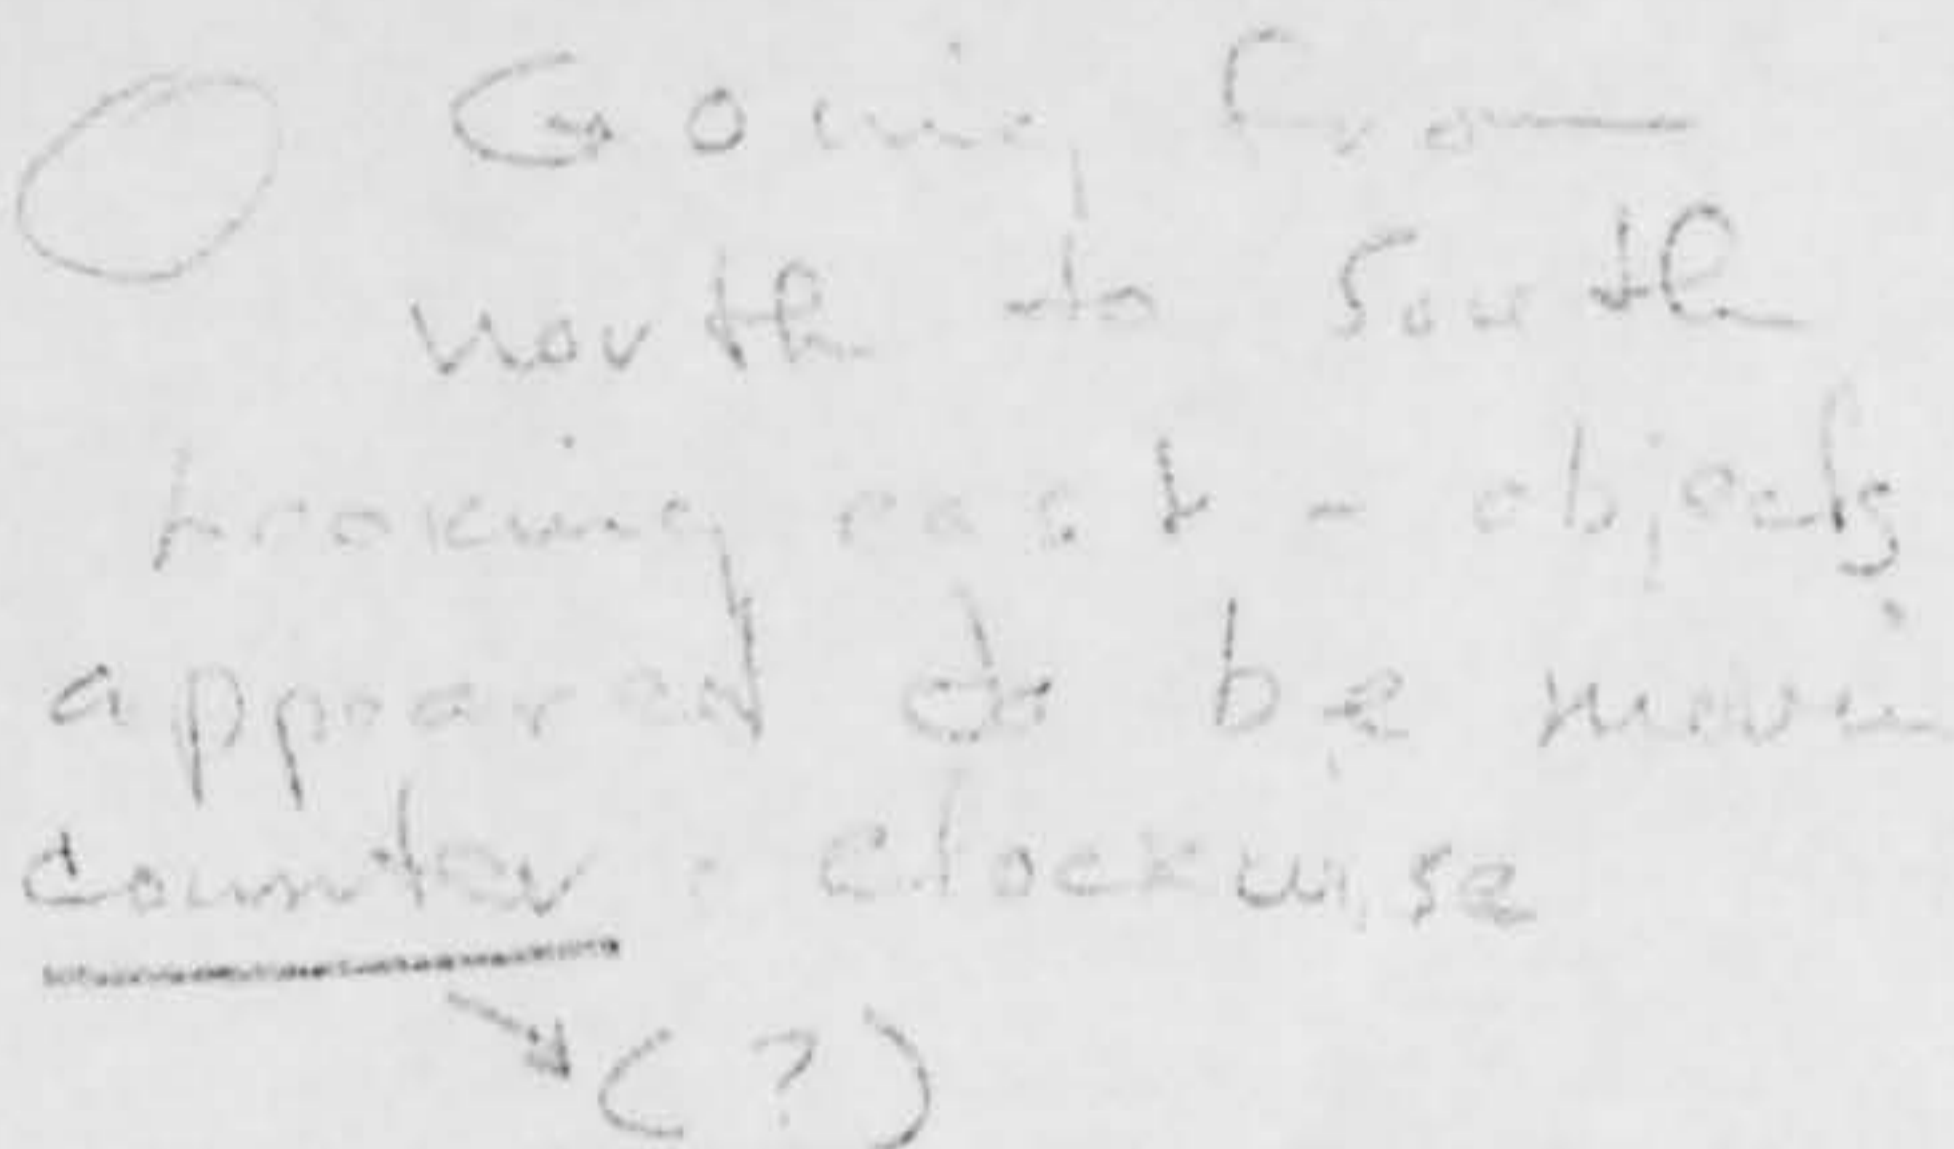 Going from
north to south
Looking east - objects
appeared to be movin
counter - clockwise
(?)